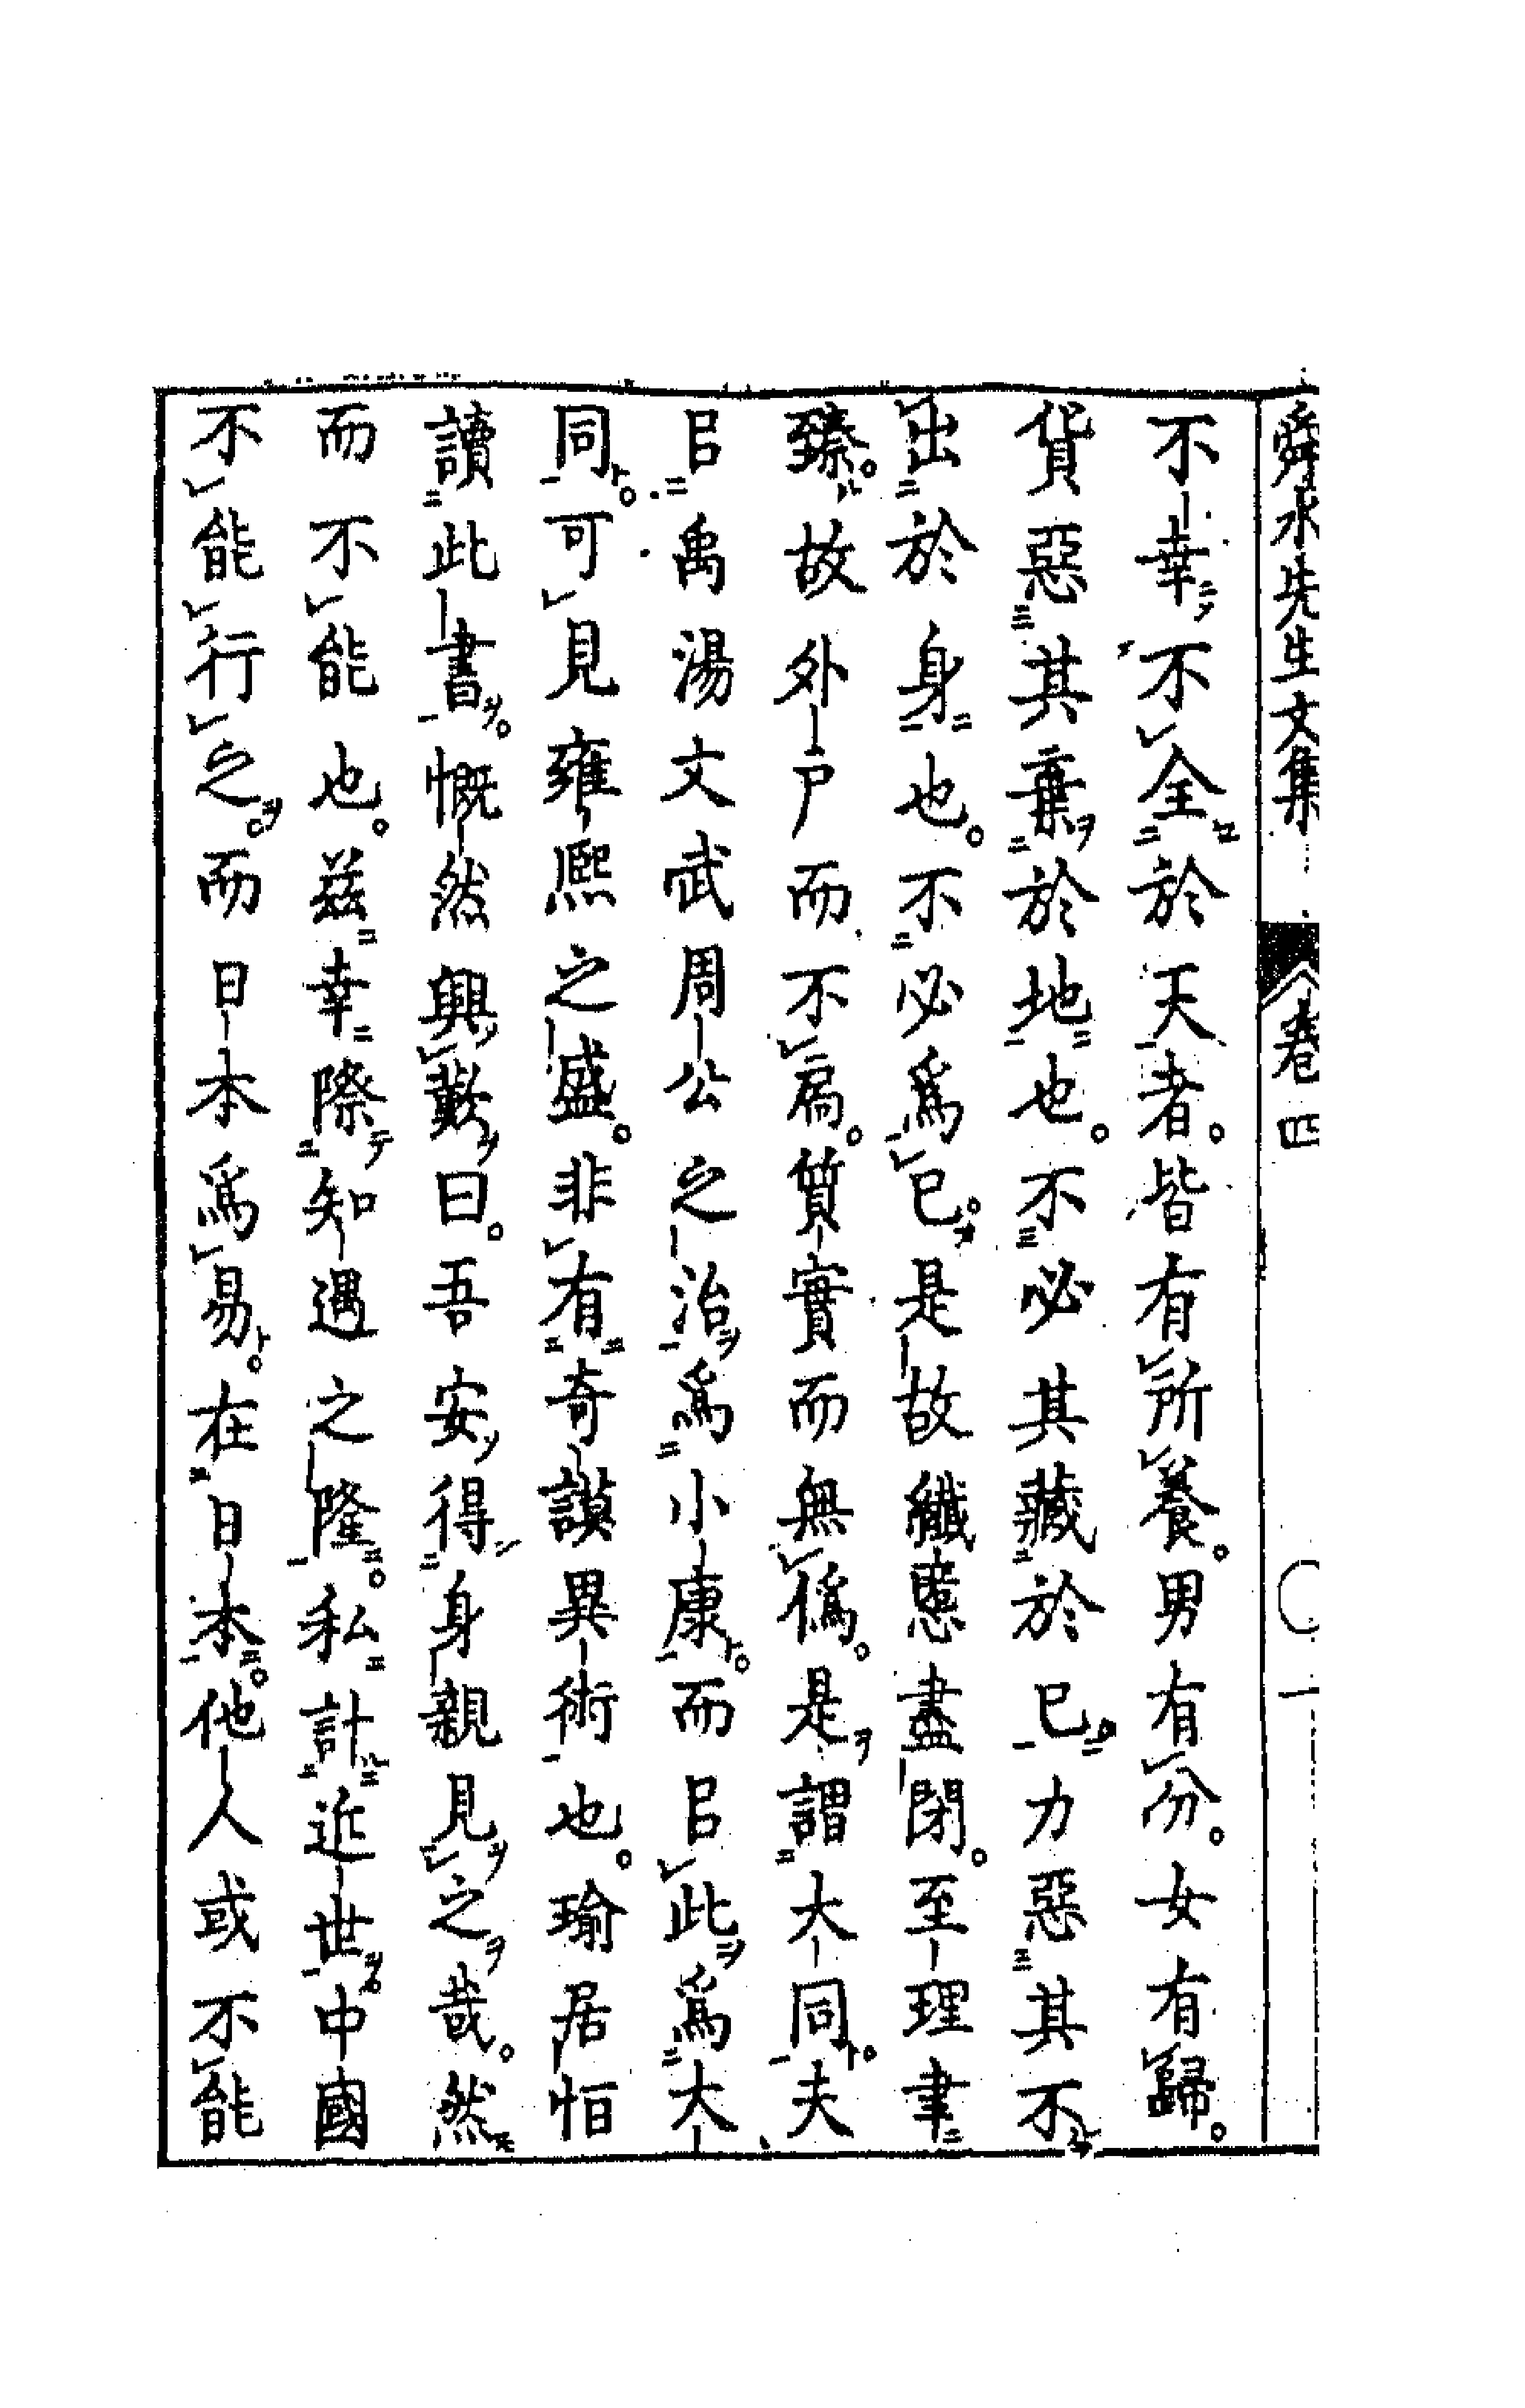 舜水先生文集 卷四 一
不幸不全於天者。皆有所養。男有分。女有歸。
貨惡其棄於地也。不必其藏於己。力惡其不
出於身也。不必爲己。是故纖慝盡閉。至理聿
臻。故外戶而不扃。質實而無僞。是謂大同。夫
㠯禹湯文武周公之治爲小康。而㠯此爲大
同。可見雍熙之盛。非有奇謨異術也。瑜居恒
讀此書。慨然興歎曰。吾安得身親見之哉。然
而不能也。茲幸際知遇之隆。私計近世。中國
不能行之。而日本爲易。在日本。他人或不能